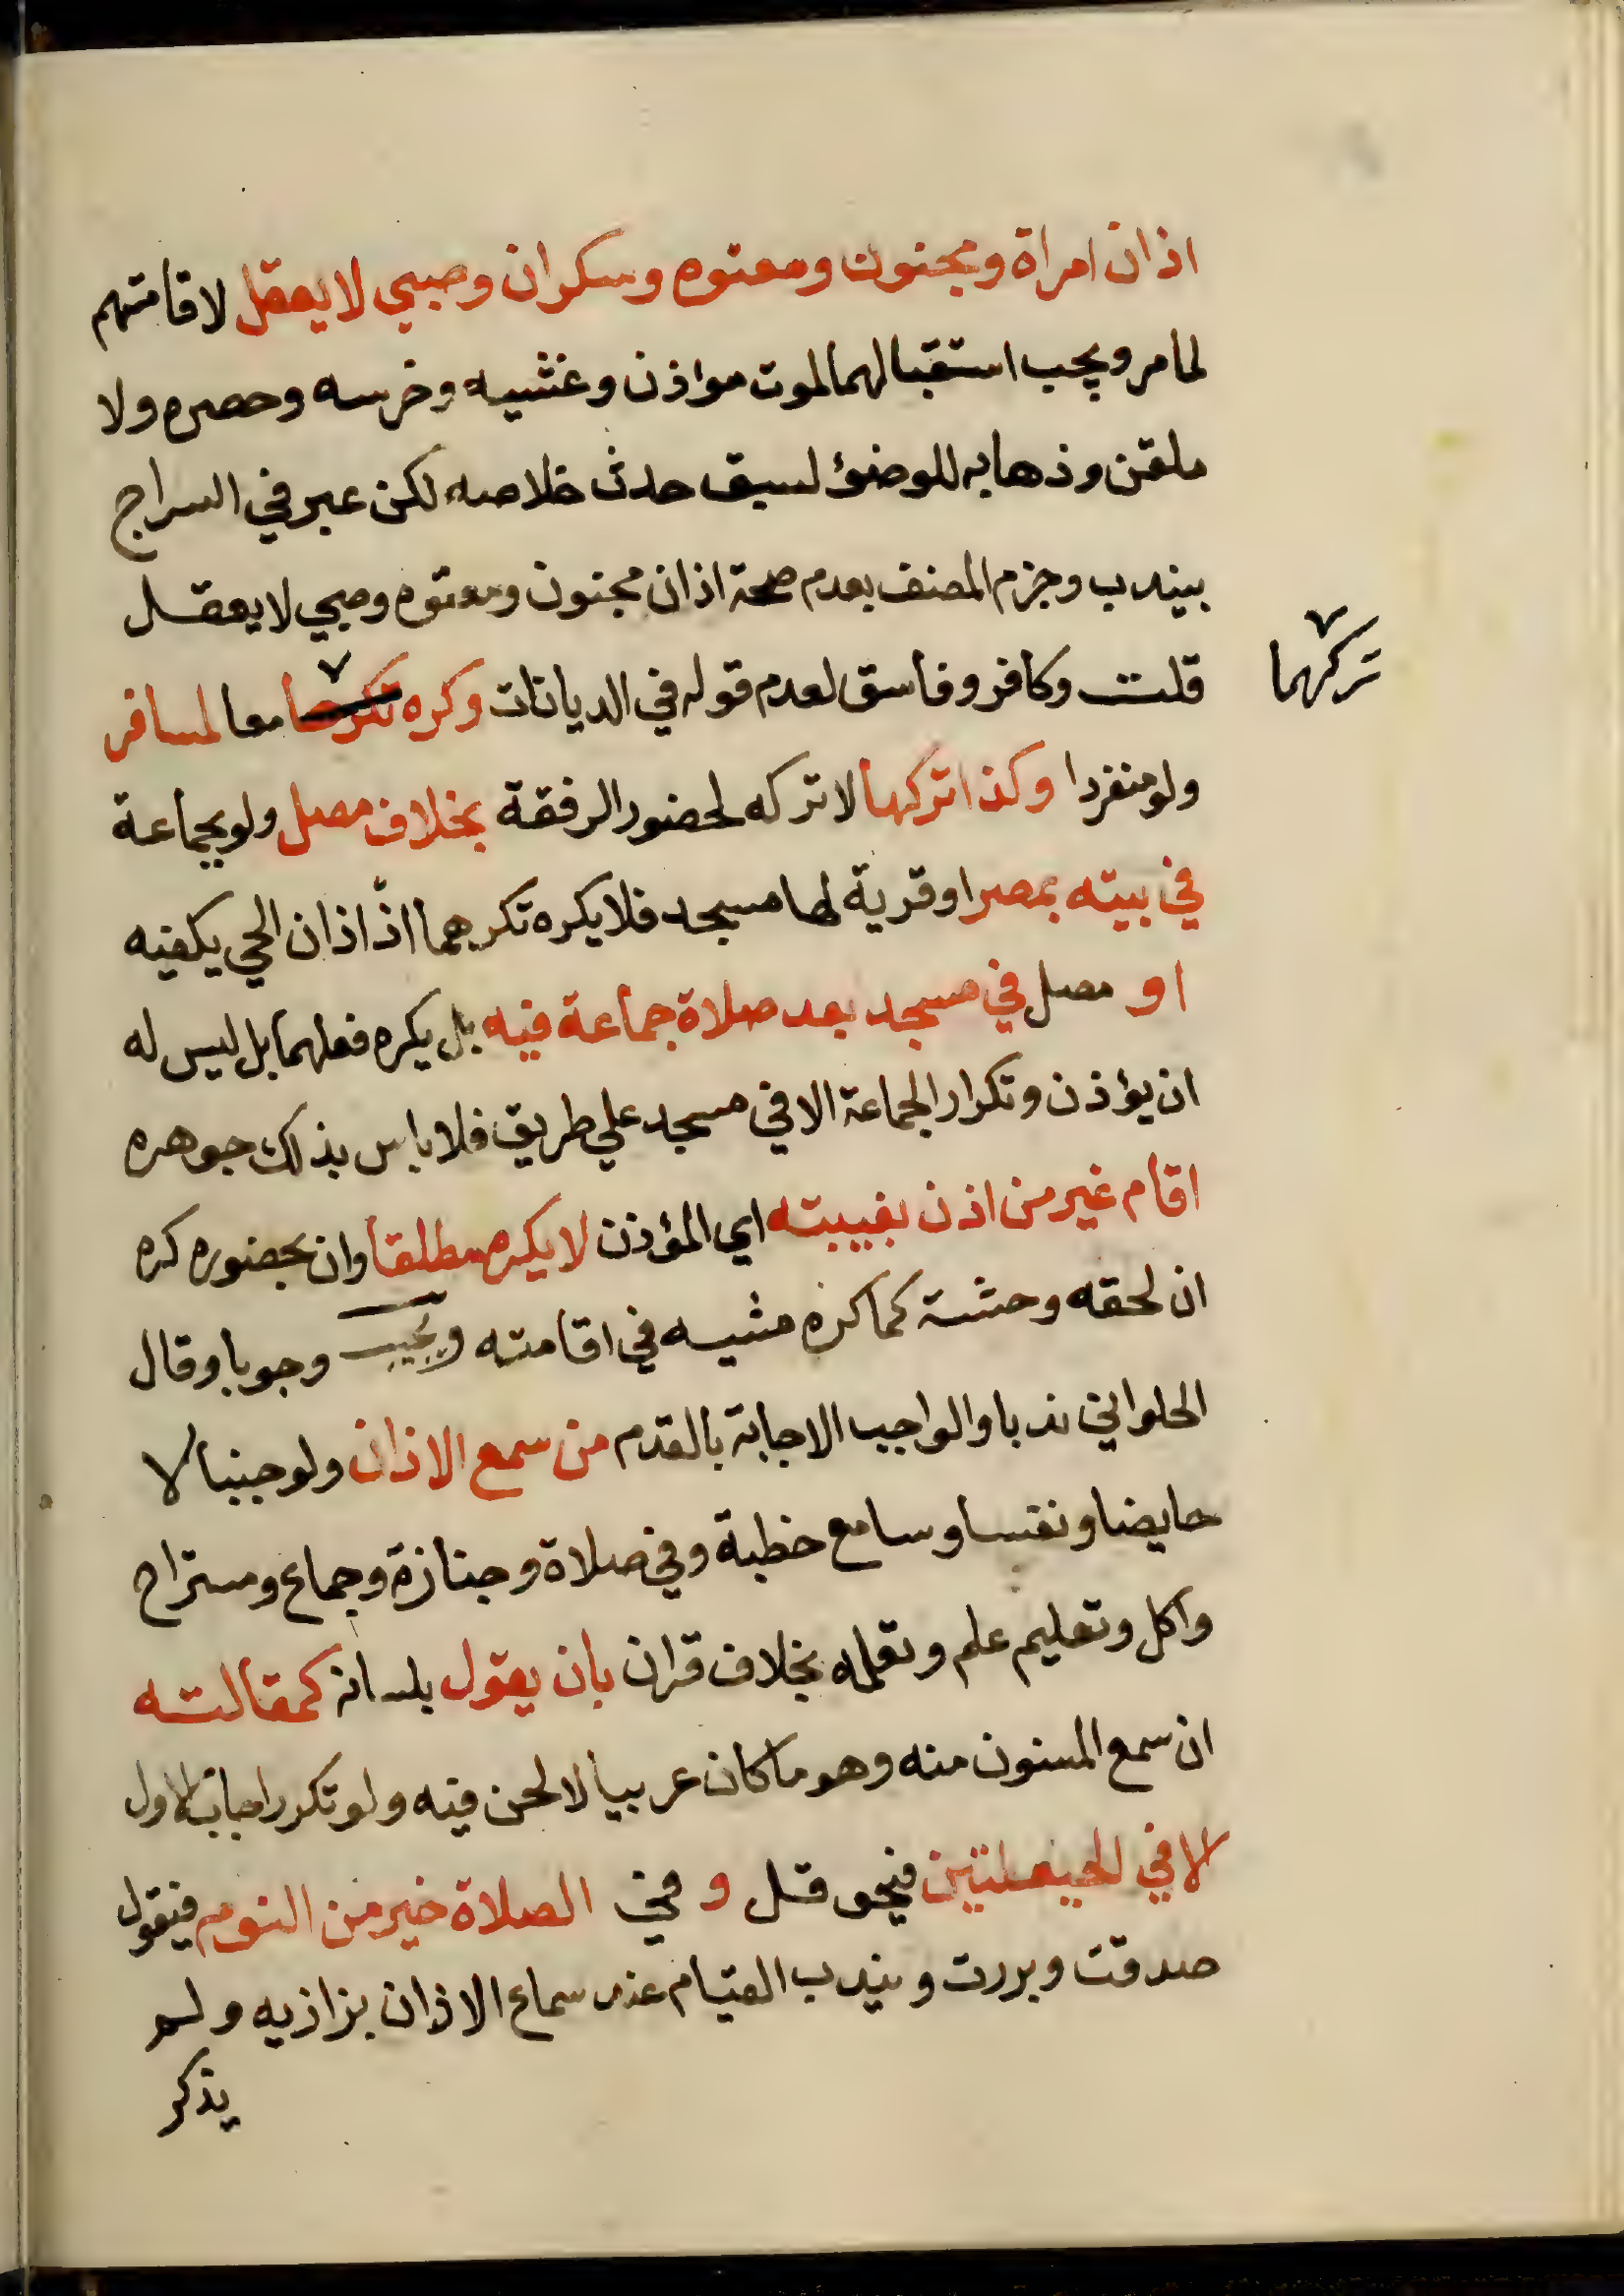 اذان امراة ومجنون ومعتوه وسكران وصبي لا يعقل لا قامتهم
لما مر ويجب استقبالهما لموت مواذن وغشيه وخرسه وحصره ولا
ملقن وذهابه للوضؤ لسبق حدث خلاصه لكن عبر في السراج
بيندب وجزم المصنف بعدم صحة اذان مجنون ومعتوه وصبي لا يعقل
قلت وكافر وفاسق لعدم قوله في الديانات وكره تكرهما معا لمسافر
تركهما
ولو منفردا وكذا تركها لا تركه لحضور الرفقة بخلاف مصل ولو بجماعة
في بيته بمصر او قرية لها مسجد فلا يكره تكرهما اذ اذان الحي يكفيه
او مصل في مسجد بعد صلاة جماعة فيه بل يكره فعلهما بل ليس له
ان يؤذن وتكرار الجماعة الا في مسجد علي طريق فلا باس بذلك جوهره
اقام غير من اذن بغيبته اي المؤذن لا يكره مطلقا وان بحضوره كره
ان لحقه وحشة كما كره مشيه في اقامته ويجيب وجوبا وقال
الحلواني ندبا والواجب الاجابة بالقدم من سمع الاذان ولو جنبا لا
حايضا ونفسا وسامع خطبة وفي صلاة وجنازة وجماع ومستراح
واكل وتعليم علم وتعلمه بخلاف قران بان يقول بلسانه كمقالته
ان سمع المسنون منه وهو ما كان عربيا لا لحن فيه ولو تكرر اجاب الاول
لا في الحيعلتين فيحوقل وفي الصلاة خير من النوم فيقول
صدقت وبررت ويندب القيام عند سماع الاذان بزازيه ولم
يذكر